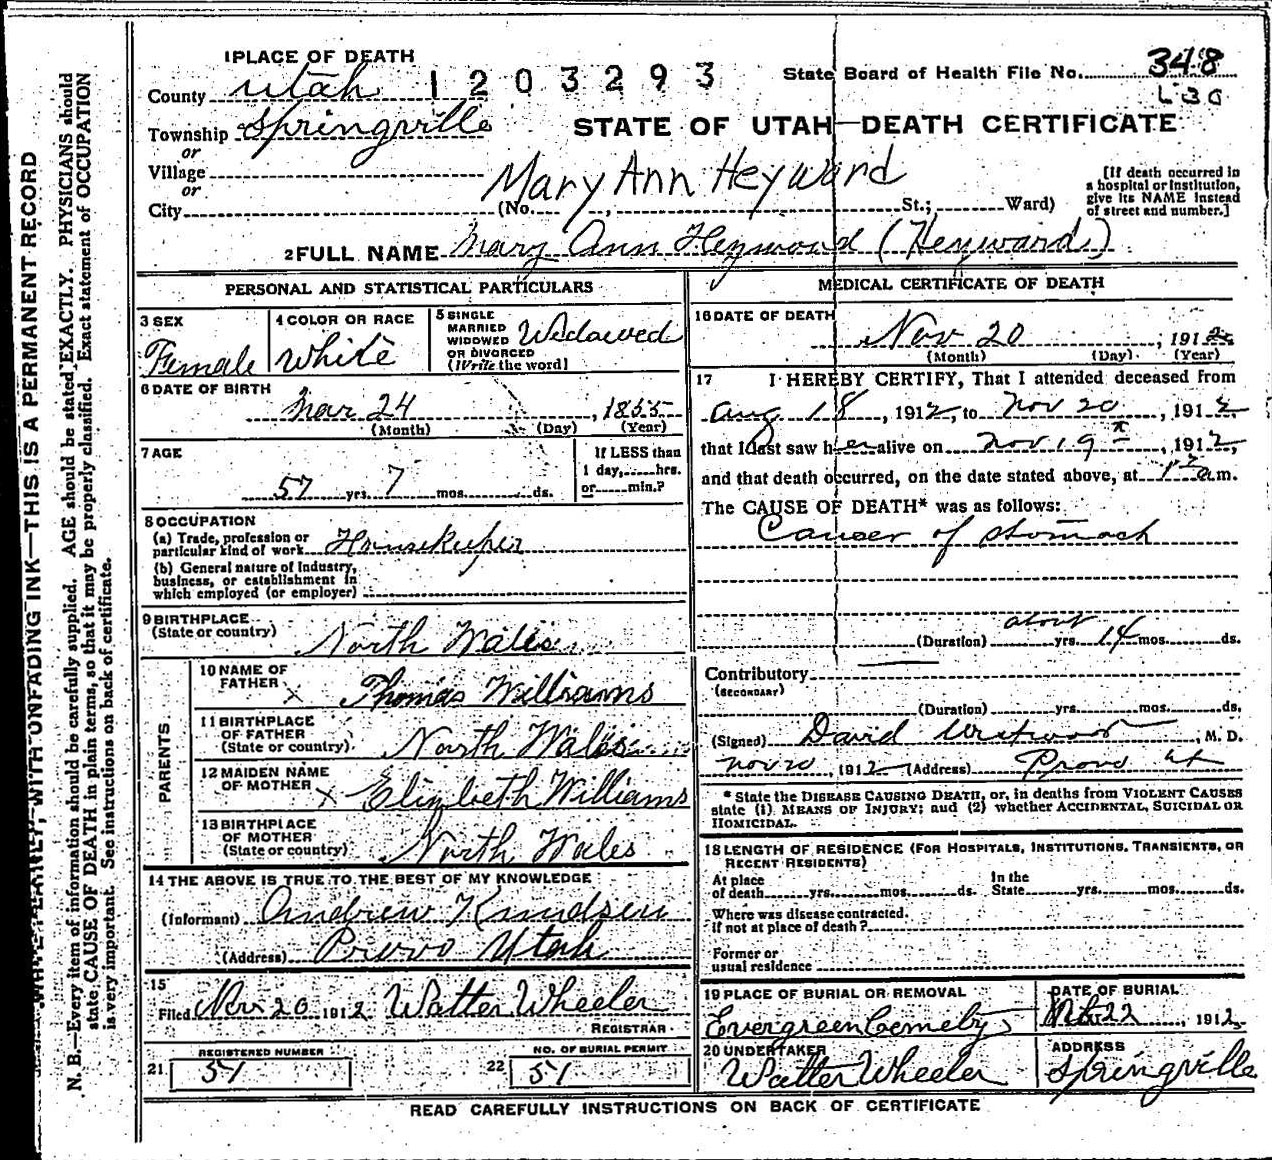 1 PLACE OF DEATH
County Utah 1203293 State Board of Health File No. 348
Township Springville
or
STATE OF UTAH—DEATH CERTIFICATE
Village
or
Mary Ann Heyward
City (No. , St.; Ward)
[If death occurred in a hospital or institution, give its NAME instead of street and number.]
2 FULL NAME Mary Ann Heywood (Heyward)
PERSONAL AND STATISTICAL PARTICULARS
3 SEX Female
4 COLOR OR RACE White
5 SINGLE MARRIED WIDOWED OR DIVORCED (Write the word) Widowed
6 DATE OF BIRTH
Mar 24, 1855
(Month) (Day) (Year)
7 AGE
57 yrs. 7 mos. ds.
If LESS than 1 day, hrs. or min.?
8 OCCUPATION
(a) Trade, profession or particular kind of work Housekeeper
(b) General nature of Industry, business, or establishment in which employed (or employer)
9 BIRTHPLACE
(State or country) North Wales
PARENTS
10 NAME OF FATHER X Thomas Williams
11 BIRTHPLACE OF FATHER (State or country) North Wales
12 MAIDEN NAME OF MOTHER X Elizabeth Williams
13 BIRTHPLACE OF MOTHER (State or country) North Wales
14 THE ABOVE IS TRUE TO THE BEST OF MY KNOWLEDGE
(Informant) Andrew Knudsen
(Address) Provo Utah
15
Filed Nov 20 1912 Walter Wheeler
REGISTRAR
21 REGISTERED NUMBER 51
22 NO. OF BURIAL PERMIT 51
MEDICAL CERTIFICATE OF DEATH
16 DATE OF DEATH
Nov 20, 1912
(Month) (Day) (Year)
17 I HEREBY CERTIFY, That I attended deceased from
Aug 18, 1912, to Nov 20, 1912
that I last saw her alive on Nov 19th, 1912,
and that death occurred, on the date stated above, at a.m.
The CAUSE OF DEATH* was as follows:
Cancer of stomach
about
(Duration) yrs. 14 mos. ds.
Contributory
(SECONDARY)
(Duration) yrs. mos. ds.
(Signed) David Westwood, M. D.
Nov 20, 1912 (Address) Provo Ut
* State the DISEASE CAUSING DEATH, or, in deaths from VIOLENT CAUSES
state (1) MEANS OF INJURY; and (2) whether ACCIDENTAL, SUICIDAL OR
HOMICIDAL.
18 LENGTH OF RESIDENCE (FOR HOSPITALS, INSTITUTIONS, TRANSIENTS, OR
RECENT RESIDENTS)
At place of death yrs. mos. ds. In the State yrs. mos. ds.
Where was disease contracted,
if not at place of death?
Former or
usual residence
19 PLACE OF BURIAL OR REMOVAL
Evergreen Cemetery
DATE OF BURIAL
Nov 22, 1912
20 UNDERTAKER
Walter Wheeler
ADDRESS
Springville
READ CAREFULLY INSTRUCTIONS ON BACK OF CERTIFICATE
WRITE PLAINLY, WITH UNFADING INK—THIS IS A PERMANENT RECORD
N. B.—Every item of information should be carefully supplied. AGE should be stated EXACTLY. PHYSICIANS should
state CAUSE OF DEATH in plain terms, so that it may be properly classified. Exact statement of OCCUPATION
is very important. See instructions on back of certificate.